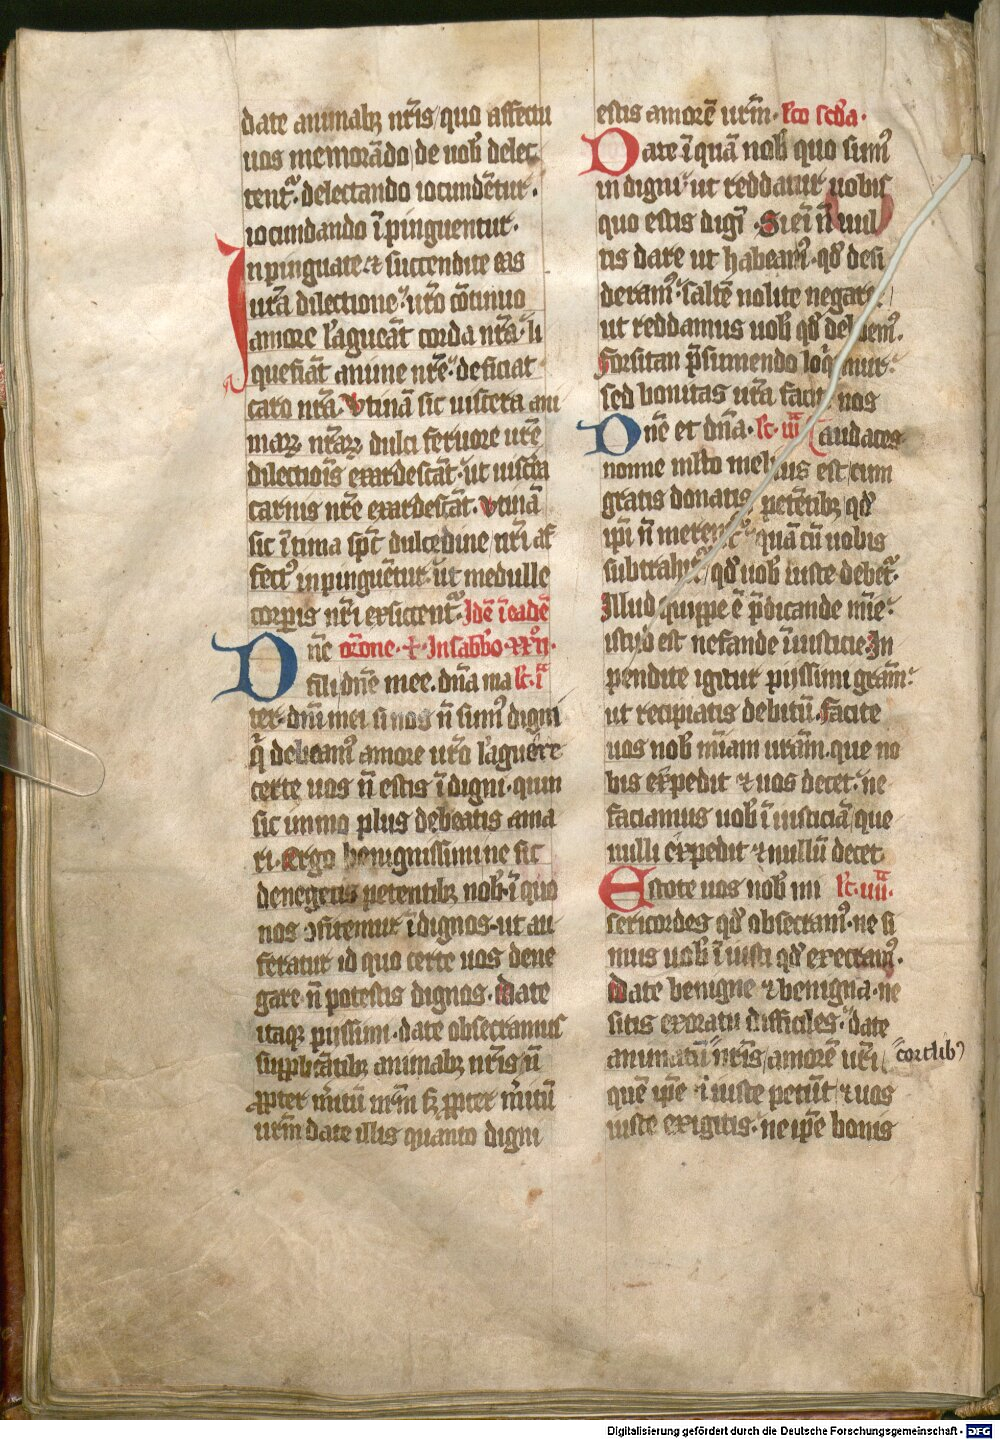 date animabꝫ nr̄is quo affectu
uos memorādo de uob̄ delec
tent᷑. delectando iocundētur.
iocundando īpinguentur.
Inpinguate ⁊ succendite eas
ur̄a dilectione. ur̄o cōtinuo
amore lāgueāt corda nr̄a. li
quefiāt anime nr̄e. deficiat
caro nr̄a. Utinā sic uiscera ani
maꝝ nr̄aꝝ dulci feruore ur̄e
dilectiōis exardescāt. ut uisc̄a
carnis nr̄e exardescāt. Utinā
sic ītima sp̄c dulcedine nr̄i af
fectꝰ inpinguētur. ut medulle
corp̄is nr̄i exsiccent᷑. Idē ī eadē
Dn̄e or̄one. In sabb̄o
fili dn̄e mee. dn̄a ma lc̄. ia
ter dn̄i mei si nos n̄ sumꝰ digni
q̄ debeamꝰ amore ur̄o lāguere
certe uos n̄ estis īdigni. quin
sic immo plus debeatis ama
ri. Ergo benignissimi ne sic
denegetis petentibꝫ nob̄. ī quo
nos ꝯfitemur īdignos. ut au
feratur id quo certe uos dene
gare n̄ potestis dignos. Date
itaqꝫ piissimi. date obsecramus
supplicātibꝫ animabꝫ nr̄is n̄
ꝓpter m̄itū nr̄m sꝫ ꝓpter m̄itū
ur̄m date illis quanto digni
estis amorē ur̄m. sc̄da.
Date īquā nob̄ quo sumꝰ
indigni. ut reddatur uobis
quo estis digī. Si eī n̄ uul
tis dare ut habeamꝰ. qd̄ desi
deramꝰ. saltē nolite negare
ut reddamus uob̄ qd̄ debemꝰ.
Forsitan p̄sumendo loq̄mur.
sed bonitas ur̄a facit nos
Dn̄e et dn̄a. lc̄. iiia audaces
nonne ml̄to melius est cum
gratis donatis petētibꝫ qd̄
ip̄i n̄ merent᷑ quā cū uobis
subtrahit᷑ qd̄ uob̄ iuste debet᷑.
Illud quippe ē p̄dicande mīe.
istud est nefande īiusticie. In
pendite igitur piissimi grām.
ut recipiatis debitū. Facite
uos nob̄ m̄iam urām. que no
bis expedit ⁊ uos decet. ne
faciamus uob̄ īiusticiā que
nulli expedit ⁊ nullū decet
Estote uos nob̄ mi lc̄. iiiia.
sericordes qd̄ obsecramꝰ. ne si
mus uob̄ īiusti qd̄ execramꝰ.
Date benigne ⁊ benigna. ne
sitis exoratu difficiles. date
animatū nr̄is amorē ur̄i
quē ip̄e īiuste petūt ⁊ uos
iuste exigitis. ne ip̄e bonis
Digitalisierung gefördert durch die Deutsche Forschungsgemeinschaft - DFG